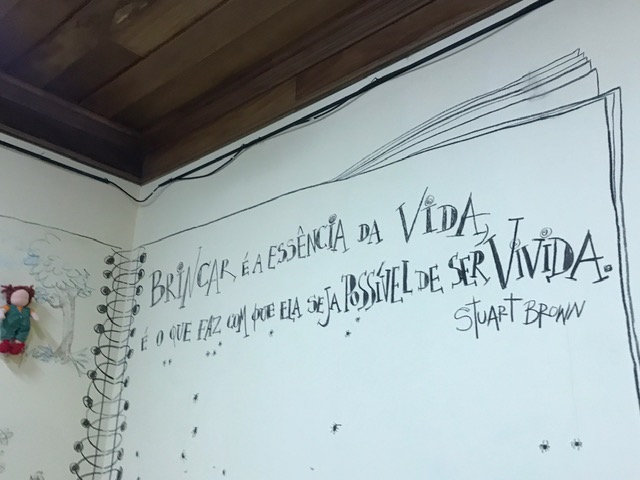 BRINCAR, É A ESSÊNCIA DA VIDA,
É O QUE FAZ COM QUE ELA SEJA POSSÍVEL DE SER VIVIDA.
STUART BROWN